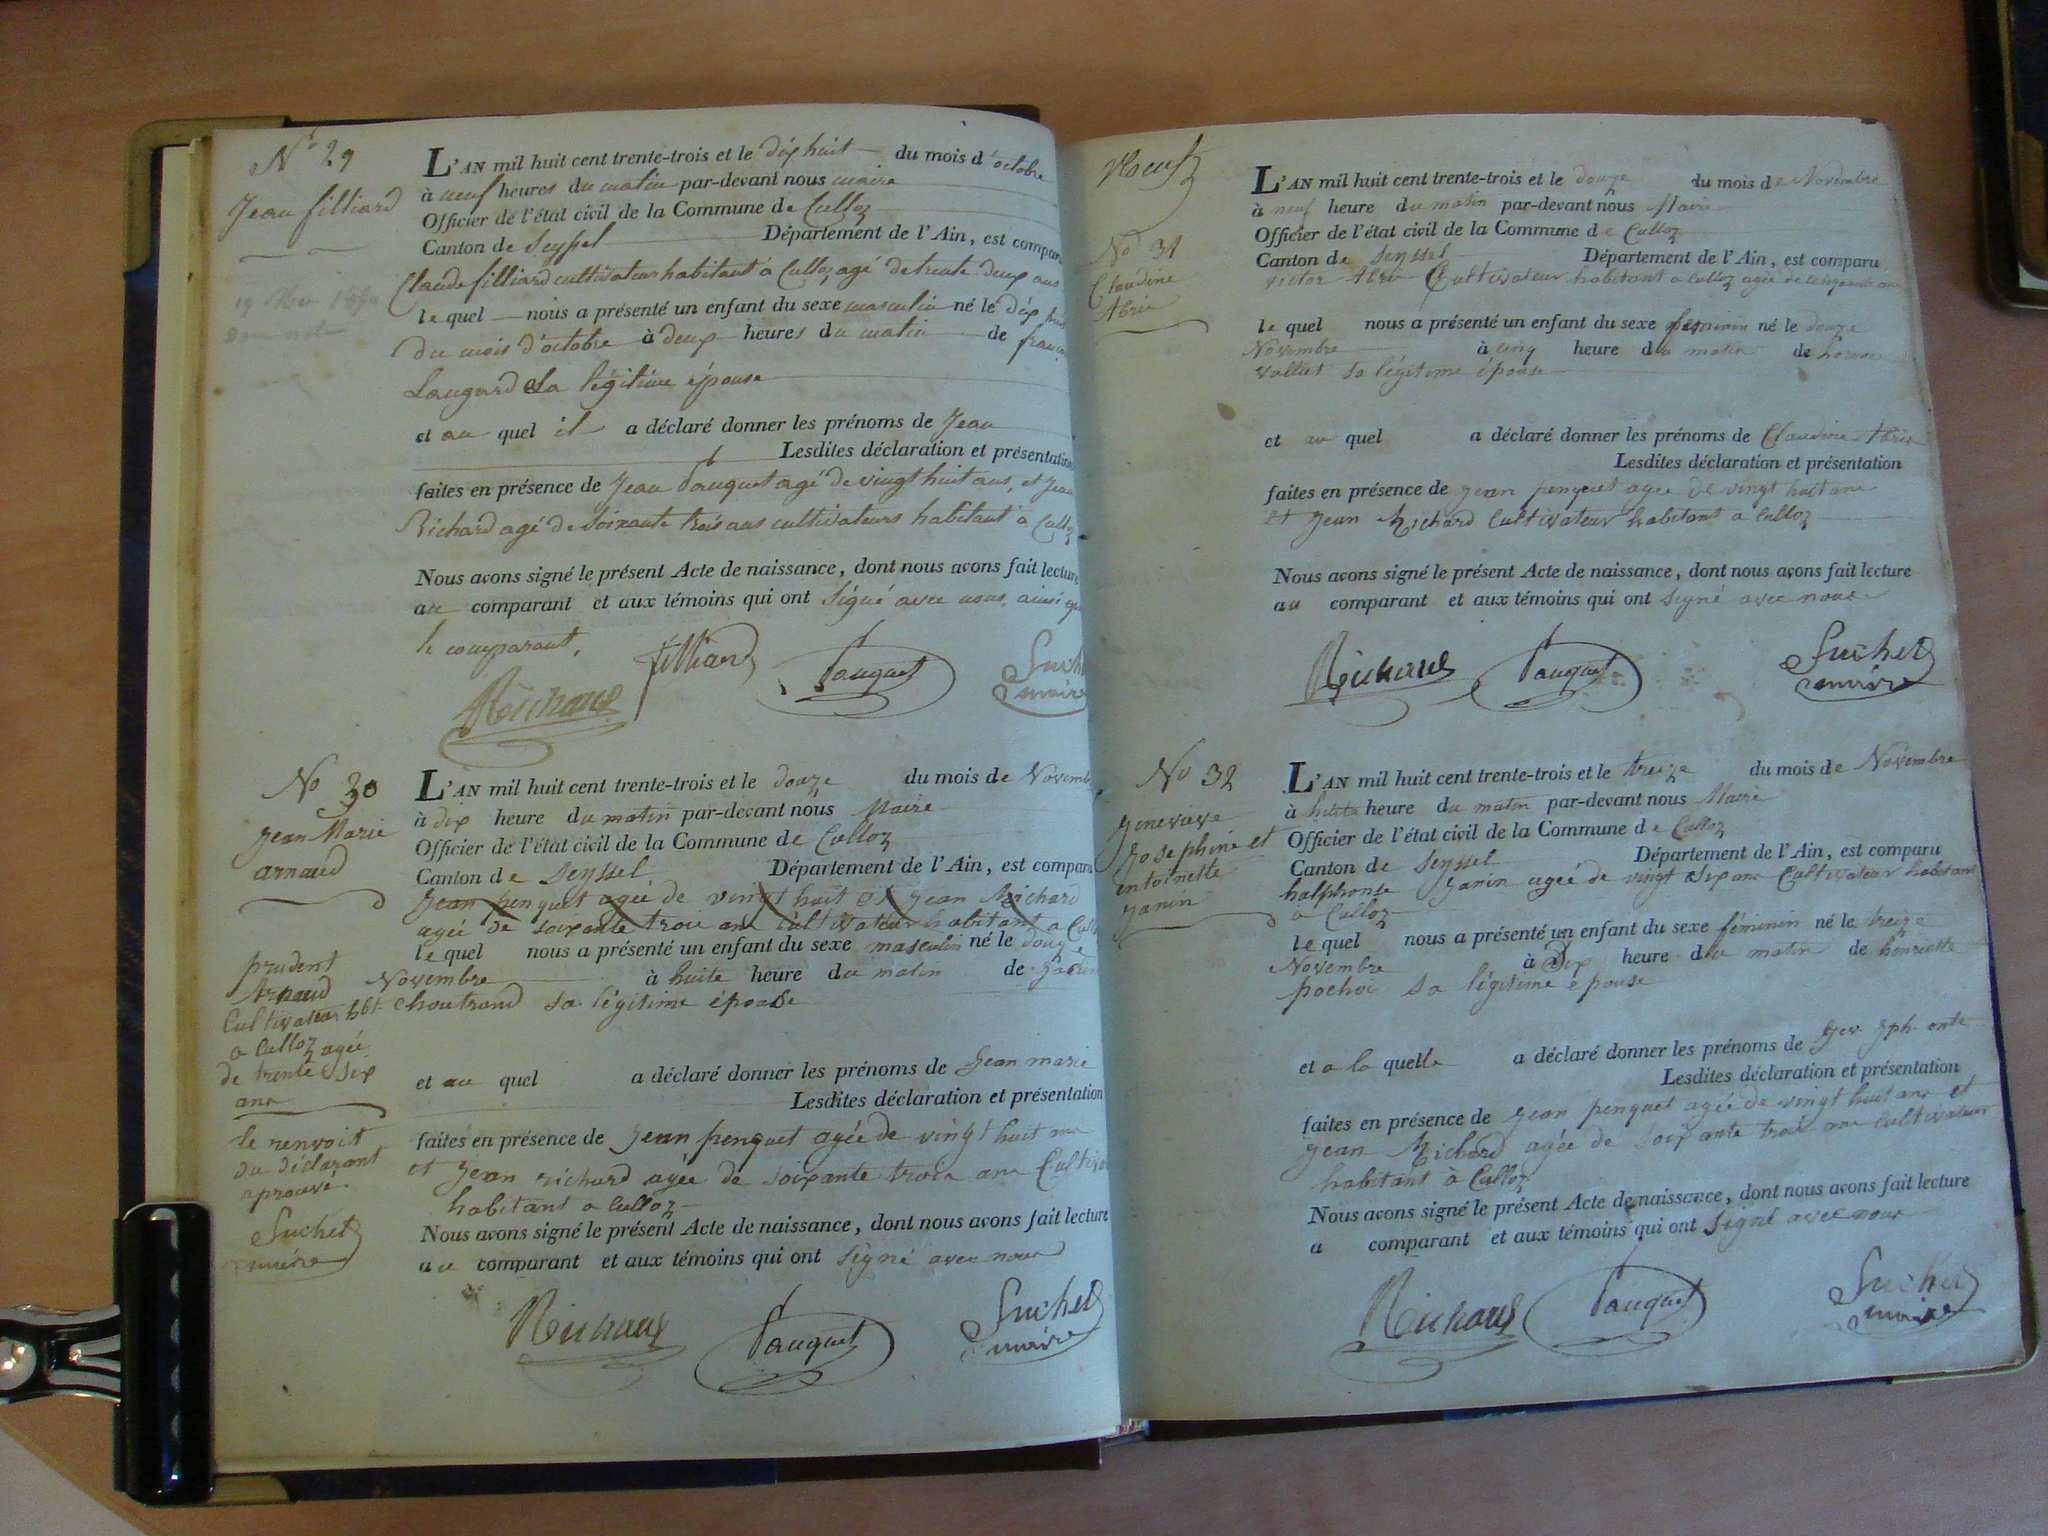 No 29
Jean filliard
L'AN mil huit cent trente-trois et le dix huit du mois d'octobre
à neuf heures du matin par-devant nous maire
Officier de l'état civil de la Commune de Culloz
Canton de Seyssel Département de l'Ain, est comparu
Claude filliard cultivateur habitant à Culloz agé de trente deux ans
le quel nous a présenté un enfant du sexe masculin né le dix huit
du mois d'octobre à deux heures du matin de
Laugard sa légitime épouse
et au quel il a déclaré donner les prénoms de Jean
Lesdites déclaration et présentation
faites en présence de Jean Pauquet agé de vingt huit ans, et Jean
Richard agé de soixante trois ans cultivateurs habitant à Culloz
Nous avons signé le présent Acte de naissance, dont nous avons fait lecture
au comparant et aux témoins qui ont signé avec nous, ainsi que
le comparant,
Richard filliard Pauquet Suchet
maire
No 30
Jean Marie
arnaud
L'AN mil huit cent trente-trois et le douze du mois de Novembre
à dix heure du matin par-devant nous Maire
Officier de l'état civil de la Commune de Culloz
Canton de Seyssel Département de l'Ain, est comparu
Jean penquet agée de vingt huit et Jean Richard
agée de soixante troi ans Cultivateur habitant a Culloz
le quel nous a présenté un enfant du sexe masculin né le douze
Novembre à huite heure du matin de
choutrand sa légitime épouse
prudent
Arnaud
Cultivateur hbt
a Culloz agée
de trente six
ans
le renvoit
du déclarant
aprouvé.
Suchet
maire
et au quel a déclaré donner les prénoms de Jean marie
Lesdites déclaration et présentation
faites en présence de Jean penquet agée de vingt huit ans
et Jean richard agée de soixante trois ans
habitant a Culloz
Nous avons signé le présent Acte de naissance, dont nous avons fait lecture
au comparant et aux témoins qui ont signé avec nous
Richard Pauquet Suchet
maire
No 31
Claudine
Abrie
L'AN mil huit cent trente-trois et le douze du mois de Novembre
à neuf heure du matin par-devant nous Maire
Officier de l'état civil de la Commune de Culloz
Canton de Seyssel Département de l'Ain, est comparu
victor Abry Cultivateur habitant a Culloz agée de
le quel nous a présenté un enfant du sexe féminin né le douze
Novembre à cinq heure du matin de
valliet sa légitime épouse
et au quel a déclaré donner les prénoms de Claudine Abrie
Lesdites déclaration et présentation
faites en présence de Jean penquet agée de vingt huit ans
et Jean Richard Cultivateur habitant a Culloz
Nous avons signé le présent Acte de naissance, dont nous avons fait lecture
au comparant et aux témoins qui ont signé avec nous
Richard Pauquet Suchet
maire
No 32
Genevieve
Josephine et
entoinette
Janin
L'AN mil huit cent trente-trois et le treize du mois de Novembre
à huite heure du matin par-devant nous Maire
Officier de l'état civil de la Commune de Culloz
Canton de Seyssel Département de l'Ain, est comparu
halphonse Janin agée de vingt six ans Cultivateur habitant
a Culloz
le quel nous a présenté un enfant du sexe féminin né le treize
Novembre à Six heure du matin de henriette
pochoi sa légitime épouse
et a la quelle a déclaré donner les prénoms de Gev. Jph. ente
Lesdites déclaration et présentation
faites en présence de Jean penquet agée de vingt huit ans et
Jean Richard agée de soixante trois ans Cultivateur
habitant à Culloz
Nous avons signé le présent Acte de naissance, dont nous avons fait lecture
a comparant et aux témoins qui ont signé avec nous
Richard Pauquet Suchet
maire